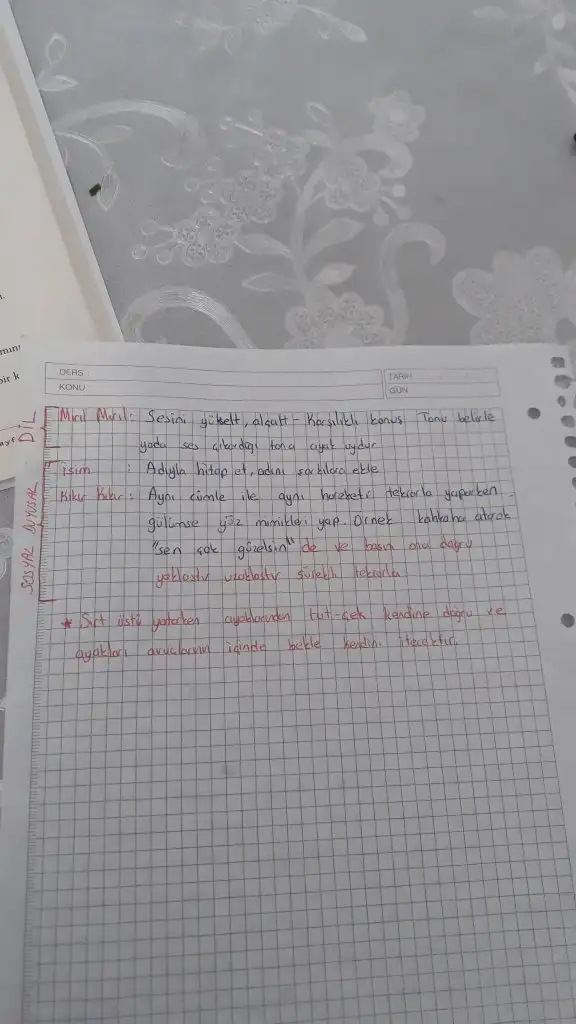 mını
bir k
DERS
KONU
TARİH
GÜN
DİL
Mırıl Mırıl: Sesini yükselt, alçalt - Karşılıklı konuş Tonu belirle
yada ses çıkardığı tona ayak uydur
SOSYAL DUYUSAL
isim : Adıyla hitap et, adını şarkılara ekle
Kıkır Kıkır: Aynı cümle ile aynı hareketi tekrarla yaparken
gülümse yüz mimikleri yap. Örnek kahkaha atarak
"sen çok güzelsin" de ve başın ona doğru
yaklaştır uzaklaştır sürekli tekrarla
* Sırt üstü yatarken ayaklarından tut-çek kendine doğru ve
ayakları avuçlarının içinde bekle kendini itecektir.